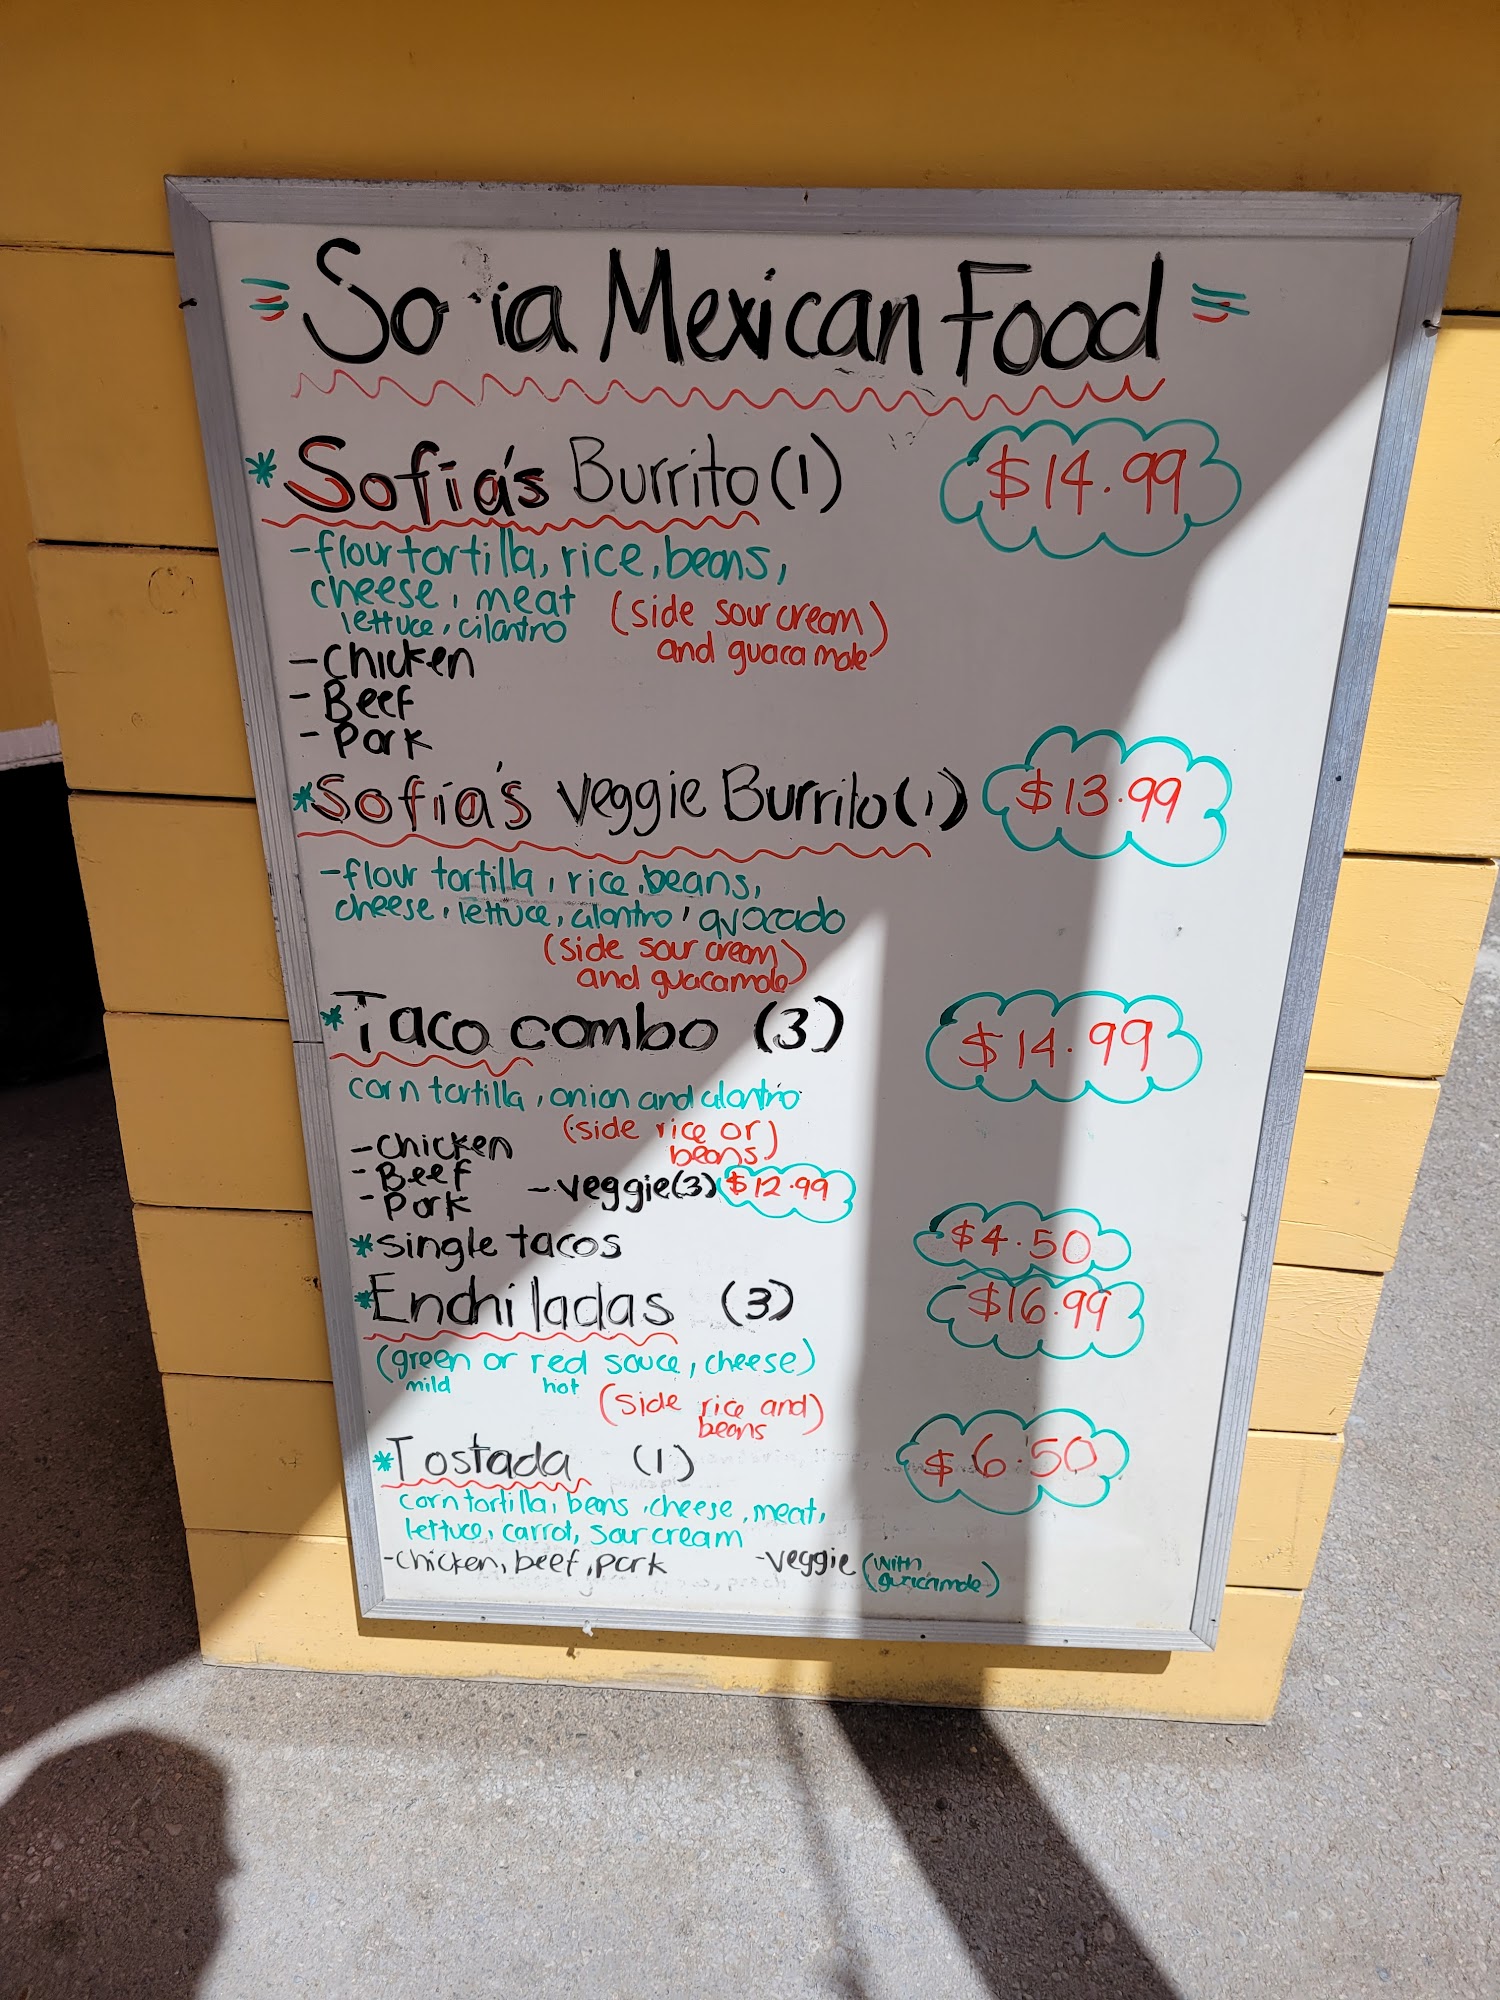 = So ia Mexican Food =
* Sofía's Burrito (1) $14.99
- flour tortilla, rice, beans,
cheese, meat
lettuce, cilantro
(side sour cream)
and guacamole
- Chicken
- Beef
- Pork
* Sofía's Veggie Burrito (1) $13.99
- flour tortilla, rice, beans,
cheese, lettuce, cilantro, avocado
(side sour cream)
and guacamole
* Taco combo (3) $14.99
corn tortilla, onion and cilantro
(side rice or)
beans)
- Chicken
- Beef
- Pork
- Veggie (3) $12.99
* single tacos $4.50
* Enchiladas (3) $16.99
(green or red sauce, cheese)
mild hot
(side rice and)
beans
* Tostada (1) $6.50
corn tortilla, beans, cheese, meat,
lettuce, carrot, sour cream
- chicken, beef, pork - Veggie (with
guacamole)